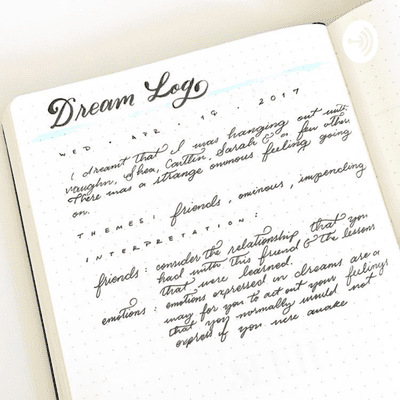 Dream Log
WED. APR. 19. 2017
I dreamt that I was hanging out with
Vaughn, Shea, Caitlin, Sarah & a few others
There was a strange ominous feeling going
on.
THEMES: friends, ominous, impending
INTERPRETATION:
friends: consider the relationship that you
had with this friend & the lessons
that were learned.
emotions: emotions expressed in dreams are a
way for you to act out your feelings
that you normally would not
express if you were awake